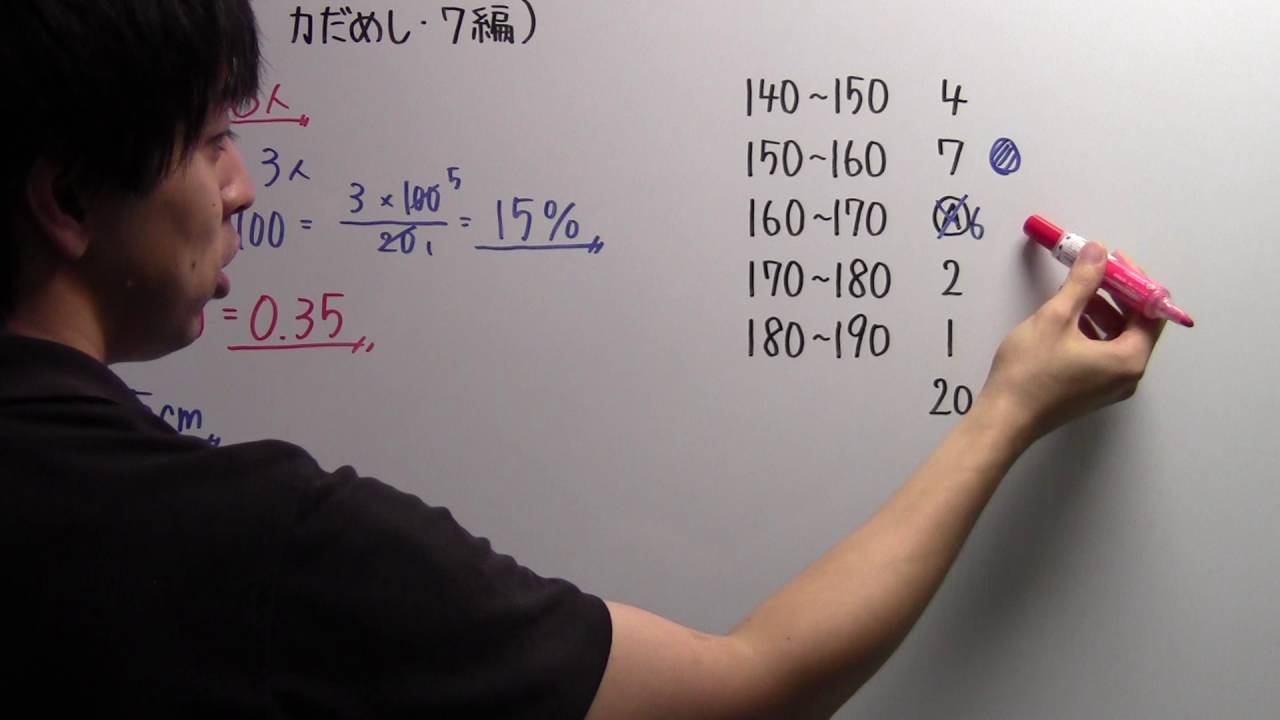 力だめし・7編)
人
3人
100 = 3 × 100 5 / 20 1 = 15%
= 0.35
cm
140~150 4
150~160 7
160~170 A 6
170~180 2
180~190 1
20